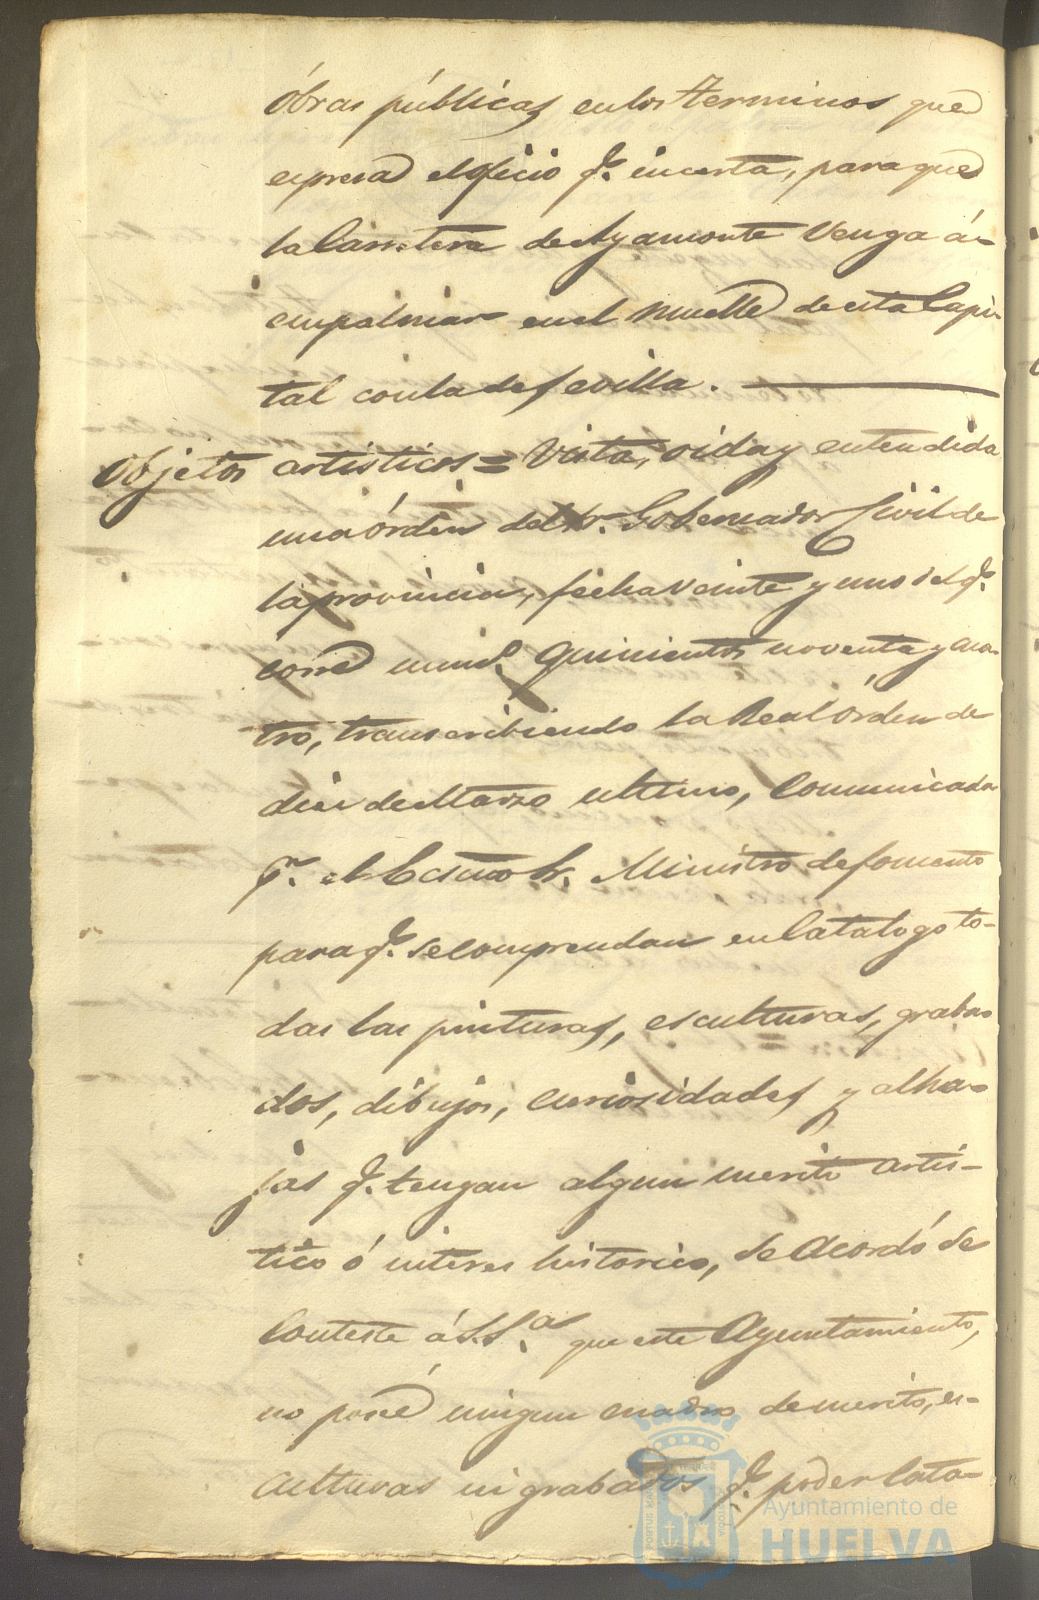 óbras públicas en los terminos que
espresa el oficio q.e incerta, para que
la Carretera de Ayamonte venga á
empalmar en el muelle de esta Capi-
tal con la de Sevilla.
Objetos artisticos = Vista, oida y entendida
una órden del Sr. Gobernador Civil de
la provincia, fecha veinte y uno del q.e
corre num.o quinientos noventa y cua-
tro, transcribiendo la Real órden de
diez de Marzo ultimo, comunicada
p.r el Ecsmo Sr. Ministro de fomento
para q.e se comprendan en Catalogo to-
das las pinturas, esculturas, graba-
dos, dibujos, curiosidades y alha-
jas q.e tengan algun merito artis-
tico ó interes historico, se Acordó se
Conteste á S.S.a que este Ayuntamiento,
no posee ningun cuadro de merito, es-
culturas ni grabados q.e poder Cata-
Ayuntamiento de
HUELVA